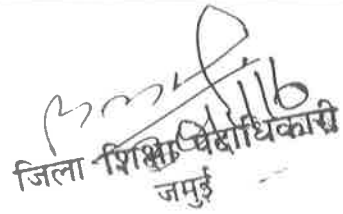 जिला शिक्षा पदाधिकारी
जमुई